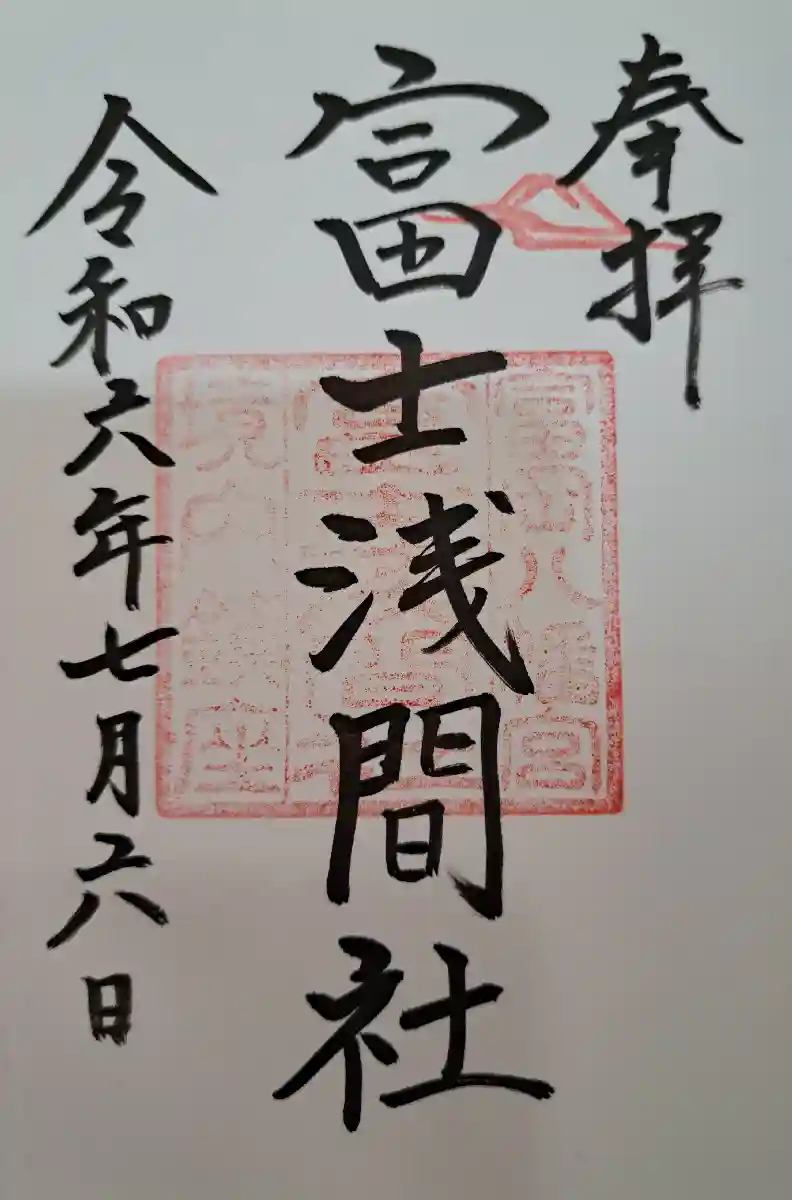 奉拝
富士浅間社
令和六年七月六日